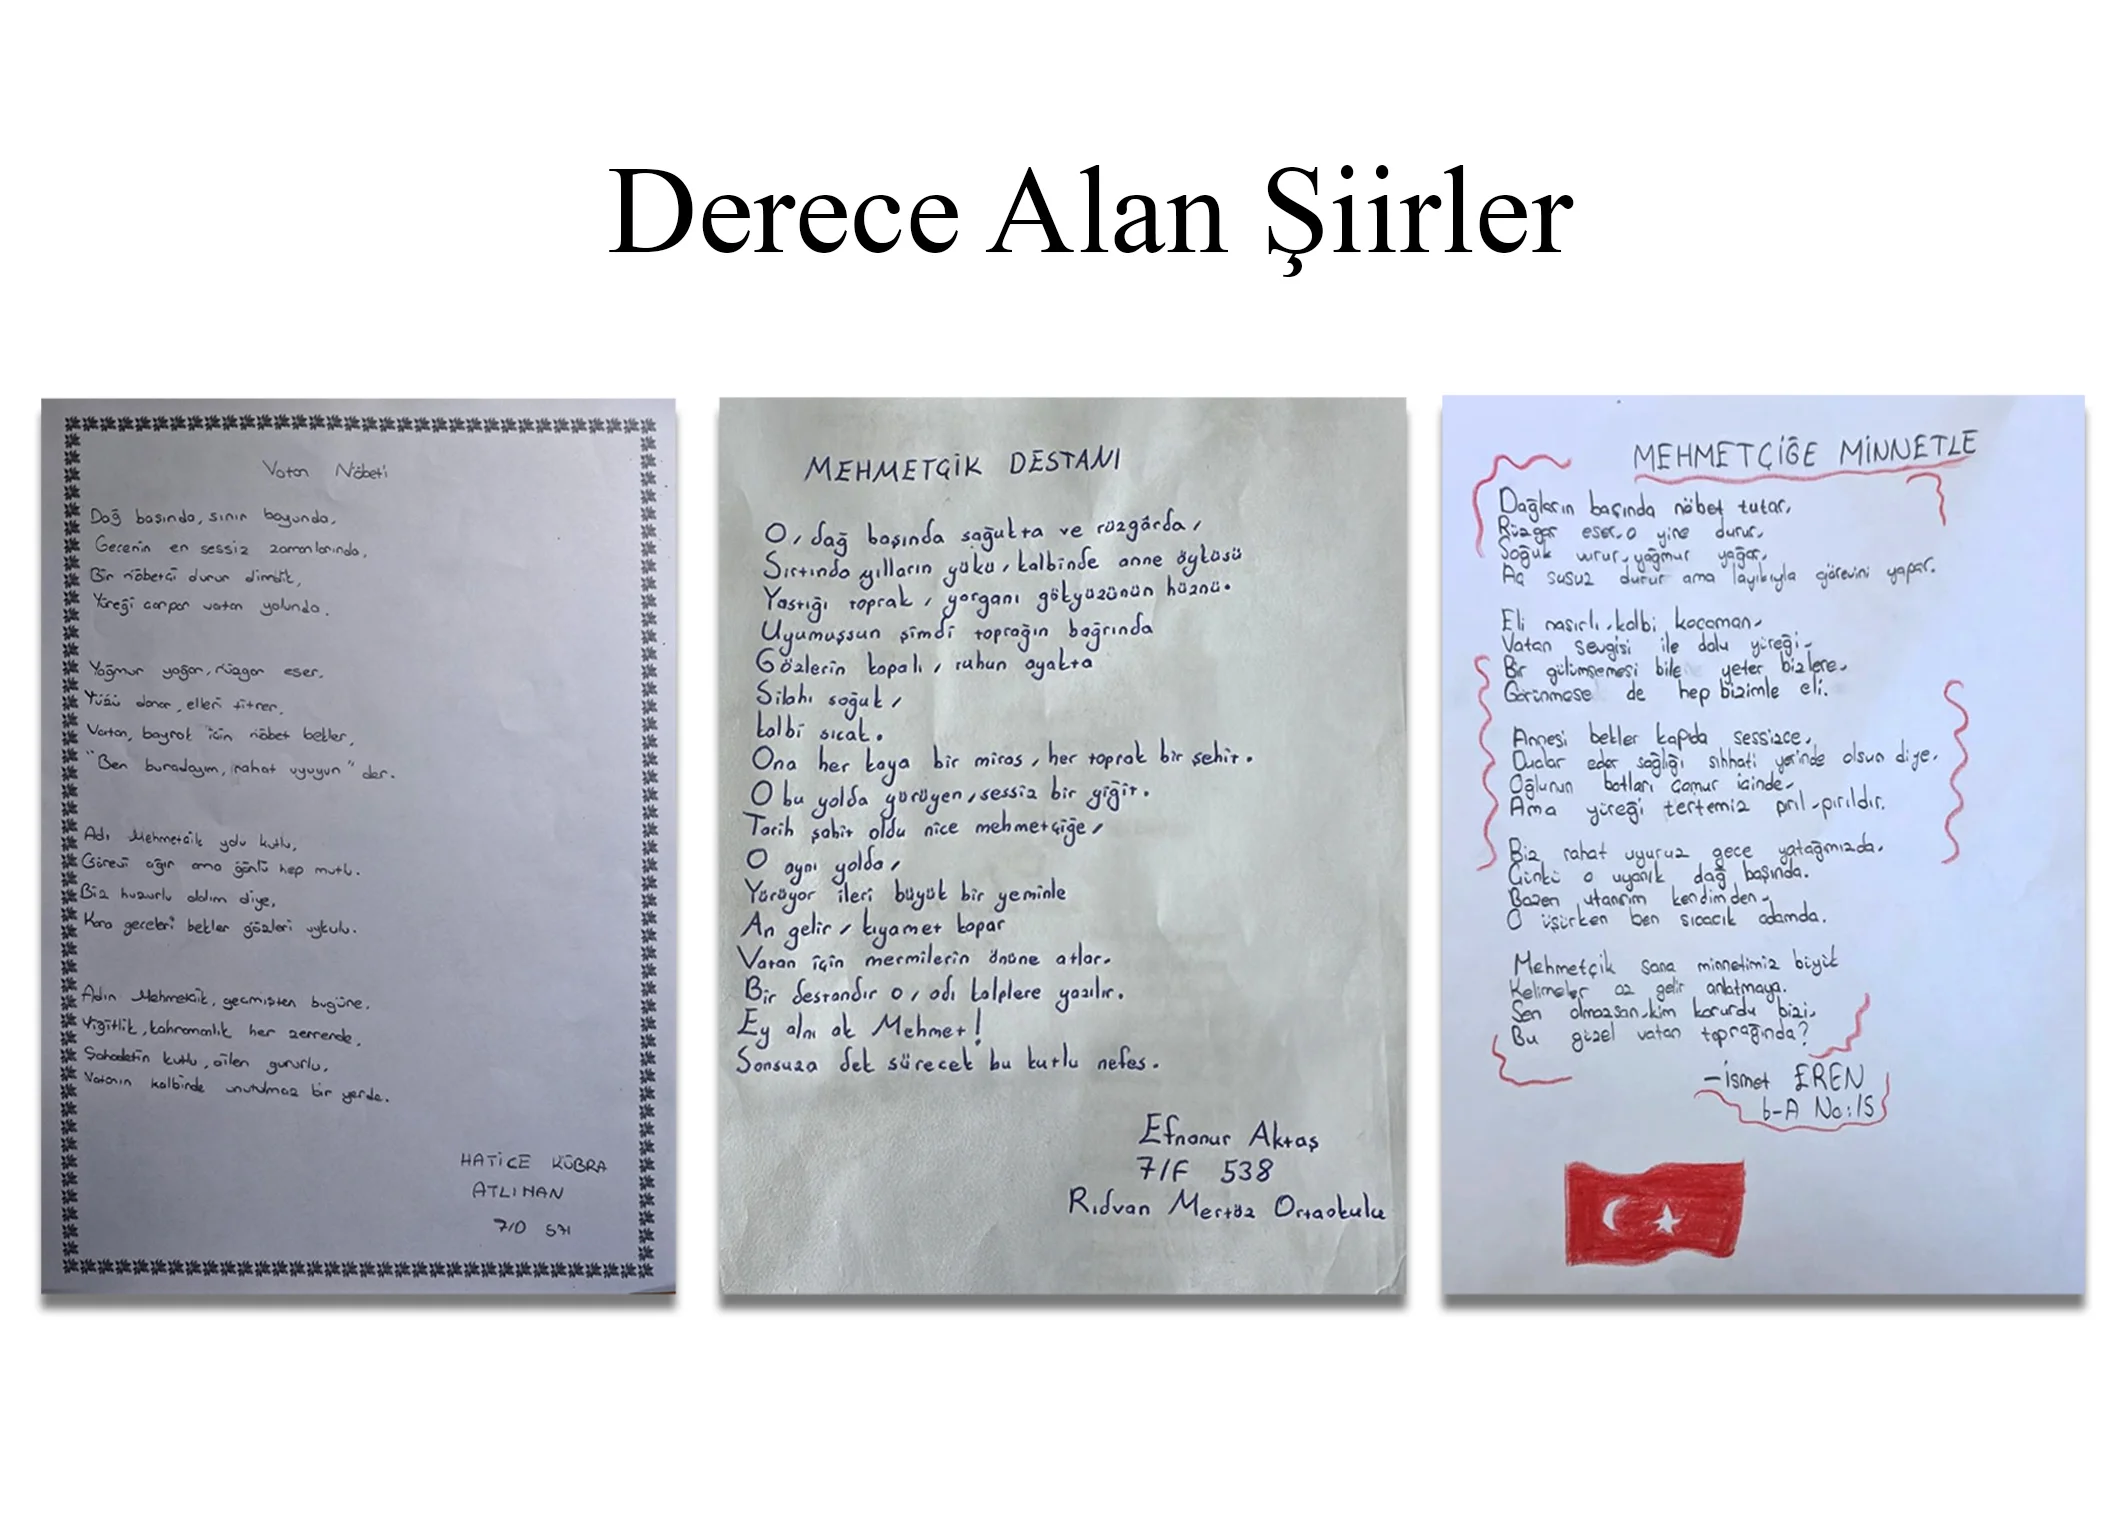 Derece Alan Şiirler
Vatan Nöbeti
Dağ başında, sınır boyunda,
Gecenin en sessiz zamanlarında,
Bir nöbetçi durur dimdik,
Yüreği çarpar vatan yolunda.
Yağmur yağar, rüzgar eser,
Yüzü donar, elleri titrer,
Vatan, bayrak için nöbet bekler,
"Ben buradayım, rahat uyuyun" der.
Adı Mehmetçik yolu kutlu,
Görevi ağır ama gönlü hep mutlu.
Biz huzurlu olalım diye,
Kara geceleri bekler gözleri uykulu.
Adın Mehmetçik, geçmişten bugüne,
Yiğitlik, kahramanlık her zerrende,
Şahadetin kutlu, ailen gururlu,
Vatanın kalbinde unutulmaz bir yerde.
HATİCE KÜBRA
ATLIHAN
7/D 571
MEHMETÇİK DESTANI
O, dağ başında soğukta ve rüzgârda,
Sırtında yılların yükü, kalbinde anne öyküsü
Yastığı toprak, yorganı gökyüzünün hüznü.
Uyumuşsun şimdi toprağın bağrında
Gözlerin kapalı, ruhun ayakta
Silahı soğuk,
kalbi sıcak.
Ona her kaya bir miras, her toprak bir şehir.
O bu yolda yürüyen, sessiz bir yiğit.
Tarih şahit oldu nice mehmetçiğe,
O aynı yolda,
Yürüyor ileri büyük bir yeminle
An gelir, kıyamet kopar
Vatan için mermilerin önüne atlar.
Bir destandır o, adı kalplere yazılır.
Ey alnı ak Mehmet!
Sonsuza dek sürecek bu kutlu nefes.
Efnanur Aktaş
7/F 538
Rıdvan Mertöz Ortaokulu
MEHMETÇİĞE MİNNETLE
Dağların başında nöbet tutar,
Rüzgar eser, o yine durur,
Soğuk vurur, yağmur yağar,
Aç susuz durur ama layıkıyla görevini yapar.
Eli nasırlı, kalbi kocaman,
Vatan sevgisi ile dolu yüreği,
Bir gülümsemesi bile yeter bizlere,
Görünmese de hep bizimle eli.
Annesi bekler kapıda sessizce,
Dualar eder sağlığı sıhhati yerinde olsun diye,
Oğlunun botları çamur içinde,
Ama yüreği tertemiz pırıl-pırıldır.
Biz rahat uyuruz gece yatağımızda,
Çünkü o uyanık dağ başında.
Bazen utanırım kendimden,
O üşürken ben sıcacık odamda.
Mehmetçik sana minnetimiz büyük
Kelimeler az gelir anlatmaya.
Sen olmazsan, kim korurdu bizi,
Bu güzel vatan toprağında?
-İsmet EREN
6-A No:15